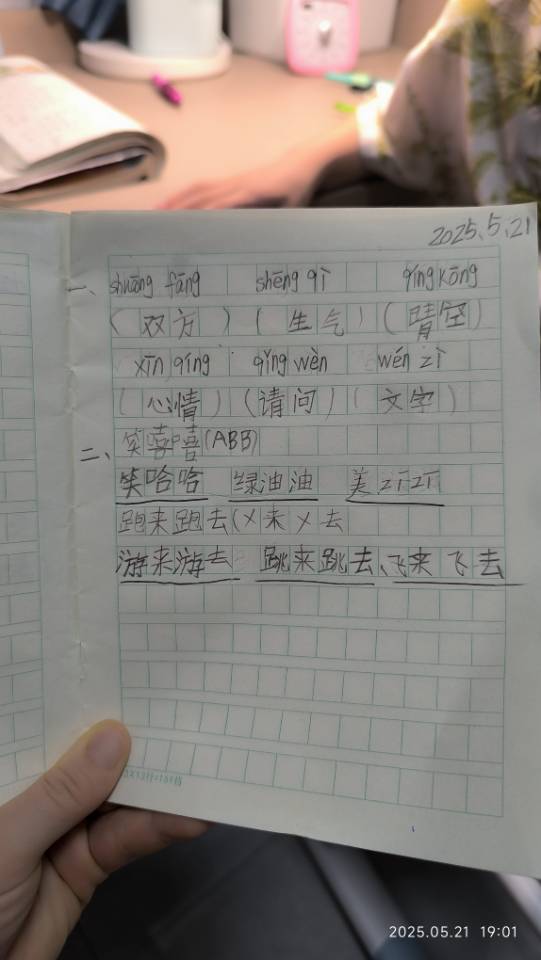 2025.5.21
一、 shuāng fāng shēng qì qíng kōng
(双方) (生气) (晴空)
xīn qíng qǐng wèn wén zì
(心情) (请问) (文字)
二、笑嘻嘻(ABB)
笑哈哈 绿油油 美zīzī
跑来跑去(×来×去
游来游去 跳来跳去、飞来飞去
2025.05.21 19:01